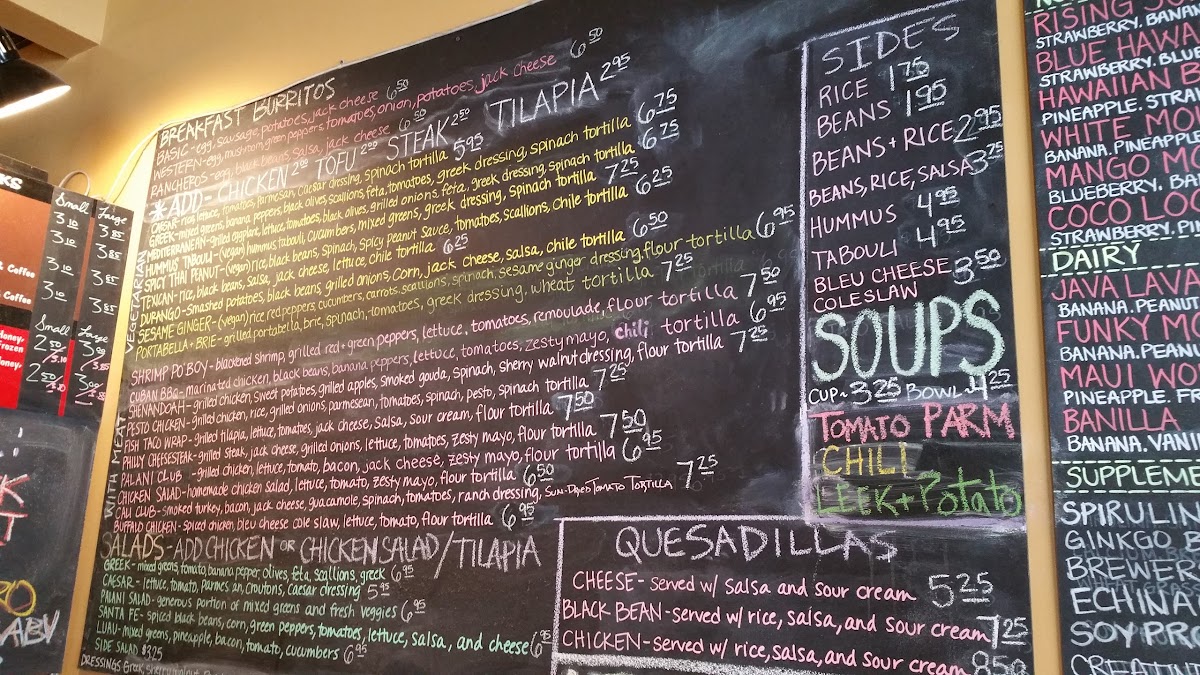 BREAKFAST BURRITOS
BASIC - egg, sausage, potatoes, jack cheese 6.50
WESTERN - egg, mushroom, green peppers, tomatoes, onion, potatoes, jack cheese 6.50
RANCHEROS - egg, black beans, salsa, jack cheese 6.50
*ADD - CHICKEN 2.00 TOFU 2.00 STEAK 2.50 TILAPIA 2.95
VEGETARIAN
CAESAR - rice, lettuce, tomatoes, parmesan, caesar dressing, spinach tortilla 5.95
GREEK - mixed greens, banana peppers, black olives, scallions, feta, tomatoes, greek dressing, spinach tortilla 6.75
MEDITERRANEAN - grilled eggplant, lettuce, tomatoes, black olives, grilled onions, feta, greek dressing, spinach tortilla 6.75
HUMMUS TABOULI - (vegan) hummus, tabouli, cucumbers, mixed greens, greek dressing, spinach tortilla 7.25
SPICY THAI PEANUT - (vegan) rice, black beans, spinach, spicy peanut sauce, tomatoes, scallions, chile tortilla 6.25
TEXICAN - rice, black beans, salsa, jack cheese, lettuce, chile tortilla 6.25
DURANGO - smashed potatoes, black beans, grilled onions, corn, jack cheese, salsa, chile tortilla 6.50
SESAME GINGER - (vegan) rice, red peppers, cucumbers, carrots, scallions, spinach, sesame ginger dressing, flour tortilla 6.95
PORTABELLA + BRIE - grilled portabella, brie, spinach, tomatoes, greek dressing, wheat tortilla 7.25
WITH MEAT
SHRIMP PO'BOY - blackened shrimp, grilled red + green peppers, lettuce, tomatoes, remoulade, flour tortilla 7.50
CUBAN BBQ - marinated chicken, black beans, banana peppers, lettuce, tomatoes, zesty mayo, chili tortilla 6.95
SHENANDOAH - grilled chicken, sweet potatoes, grilled apples, smoked gouda, spinach, sherry walnut dressing, flour tortilla 7.25
PESTO CHICKEN - grilled chicken, rice, grilled onions, parmesean, tomatoes, spinach, pesto, spinach tortilla 7.25
FISH TACO WRAP - grilled tilapia, lettuce, tomatoes, jack cheese, salsa, sour cream, flour tortilla 7.50
PHILLY CHEESESTEAK - grilled steak, jack cheese, grilled onions, lettuce, tomatoes, zesty mayo, flour tortilla 7.50
PALANI CLUB - grilled chicken, lettuce, tomato, bacon, jack cheese, zesty mayo, flour tortilla 6.95
CHICKEN SALAD - homemade chicken salad, lettuce, tomato, zesty mayo, flour tortilla 6.50
CALI CLUB - smoked turkey, bacon, jack cheese, guacamole, spinach, tomatoes, ranch dressing, SUN-DRIED TOMATO TORTILLA 7.25
BUFFALO CHICKEN - spiced chicken, bleu cheese cole slaw, lettuce, tomato, flour tortilla 6.95
SALADS - ADD CHICKEN OR CHICKEN SALAD/TILAPIA
GREEK - mixed greens, tomato, banana pepper, olives, feta, scallions, greek 6.95
CAESAR - lettuce, tomato, parmesan, croutons, Caesar dressing 5.95
PALANI SALAD - generous portion of mixed greens and fresh veggies 6.95
SANTA FE - spiced black beans, corn, green peppers, tomatoes, lettuce, salsa, and cheese 6.95
LUAU - mixed greens, pineapple, bacon, tomato, cucumbers 6.95
SIDE SALAD $3.25
DRESSINGS
QUESADILLAS
CHEESE - served w/ salsa and sour cream 5.25
BLACK BEAN - served w/ rice, salsa, and sour cream 7.25
CHICKEN - served w/ rice, salsa, and sour cream 8.50
SIDES
RICE 1.75
BEANS 1.95
BEANS + RICE 2.95
BEANS, RICE, SALSA 3.75
HUMMUS 4.95
TABOULI 4.95
BLEU CHEESE COLESLAW 3.50
SOUPS
CUP - 3.25 BOWL - 4.25
TOMATO PARM
CHILI
LEEK + Potato
RISING
STRAWBERRY, BANAN
BLUE HAWA
STRAWBERRY, BLUE
HAWAIIAN B
PINEAPPLE, STRAW
WHITE MO
BANANA, PINEAPPL
MANGO M
BLUEBERRY, BA
COCO LOC
STRAWBERRY, PI
DAIRY
JAVA LAVA
BANANA, PEANUT
FUNKY MO
BANANA, PEANU
MAUI WO
PINEAPPLE, FR
BANILLA
BANANA, VANI
SUPPLEME
SPIRULIN
GINKGO B
BREWER
ECHINA
SOY PRO
CREATIN
Small Large
3.10 3.85
3.10 3.85
3.10 3.85
3.10 3.85
& Coffee
Coffee
Small Large
Honey
Frozen
Honey